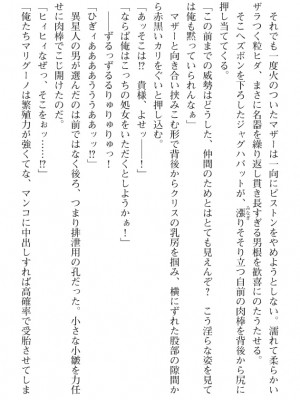 それでも一度火のついたマザーは一向にピストンをやめようとしない。濡れて柔らかい
ザラつく粒ヒダ、まさに名器を繰り返し貫き長すぎる男根を歓喜にのたうたせる。
そこへズボンを下ろしたジャグハバットが、漲りそそり立つ自前の肉棒を背後から尻に
押し当ててくる。
「この前までの威勢はどうした、仲間のためとはとても見えんぞ？　こう淫らな姿を見て
は俺も黙っていられんなぁ」
マザーと向き合い挟みこむ形で背後からクリスの乳房を掴み、横にずれた股部の隙間か
ら赤黒いカリをぐいと押し込む。
「あッそこは⁉　貴様、よせッ――！」
「ならば俺はこっちの処女をいただくとしようかぁ！」
ずるっずるるりゅりゅりゅっ！
「ひぎィああああううううああッッ⁉」
異星人の男が選んだのは前ではなく後ろ、つまり排泄用の孔だった。小さな小皺を力任
せに肉棒でこじ開けたのだ。
「ヒィヒィなぜっ、そこをぉぉ――⁉」
「俺たちマリターノは繁殖力が強くてな、マンコに中出しすれば高確率で受胎させてしま